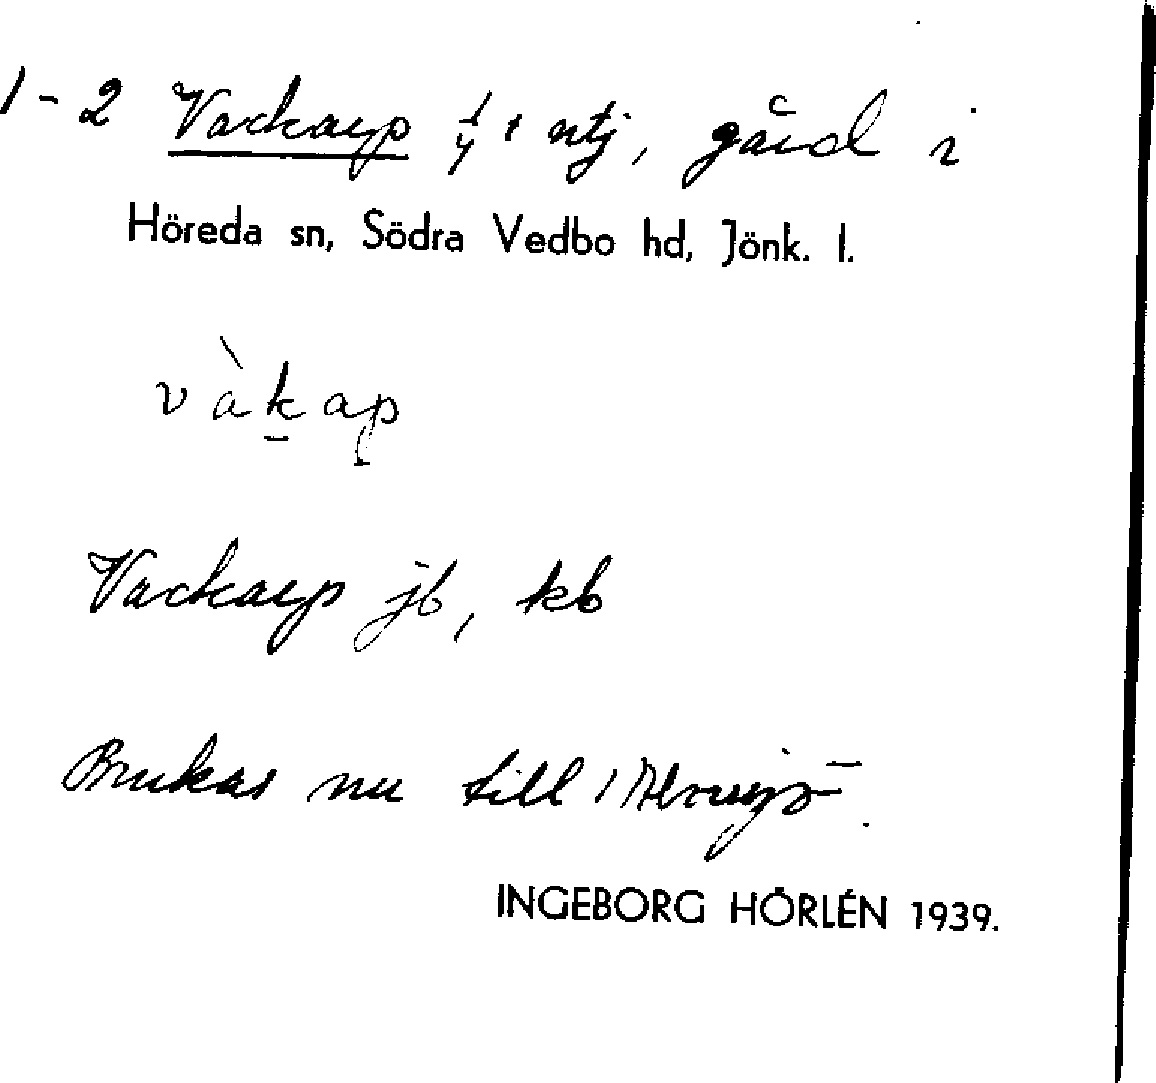 1-2 Vackarp 1/4 ntj, gård i
Höreda sn, Södra Vedbo hd, Jönk. l.
vàkap
Vackarp jb, kb
Brukas nu till
INGEBORG HÖRLÉN 1939.